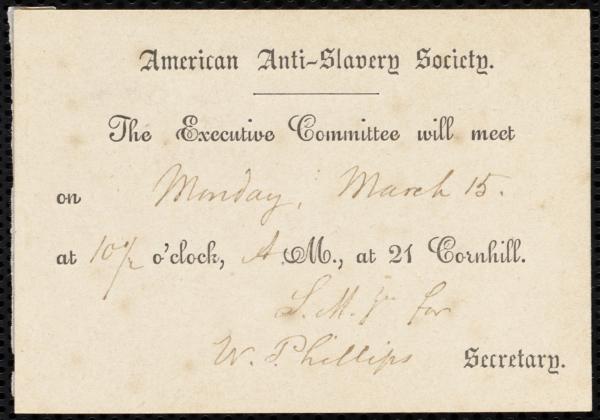 American Anti-Slavery Society.
The Executive Committee will meet
on Monday, March 15.
at 10 1/2 o'clock, A. M., at 21 Cornhill.
S. M. Jr for
W. Phillips Secretary.